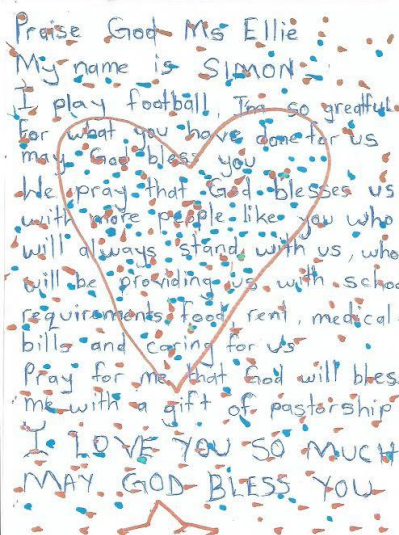 Praise God Ms Ellie
My name is SIMON
I play football, I'm so greatful
for what you have done for us
may God bless you
We pray that God blesses us
with more people like you who
will always stand with us, who
will be providing us with schoo
requirements, food, rent, medical
bills and caring for us
Pray for me that God will bles
me with a gift of pastorship
I LOVE YOU SO MUCH
MAY GOD BLESS YOU